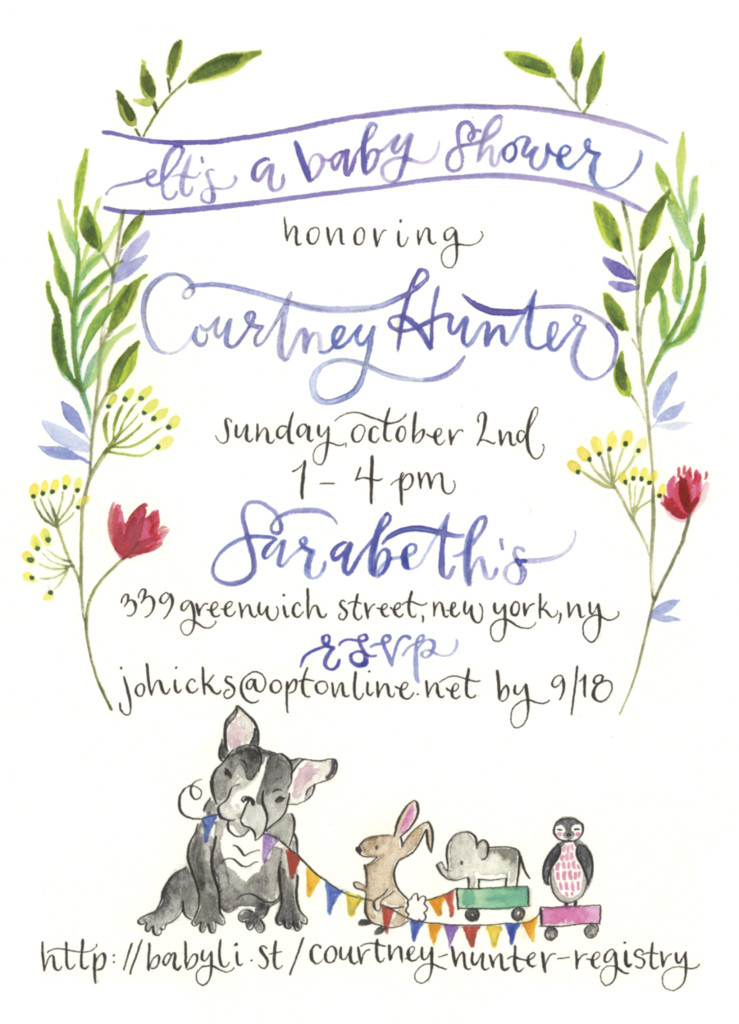 It's a baby shower
honoring
Courtney Hunter
sunday, october 2nd
1-4 pm
Sarabeth's
339 greenwich street, new york, ny
rsvp
johicks@optonline.net by 9/18
http://babyli.st/courtney-hunter-registry